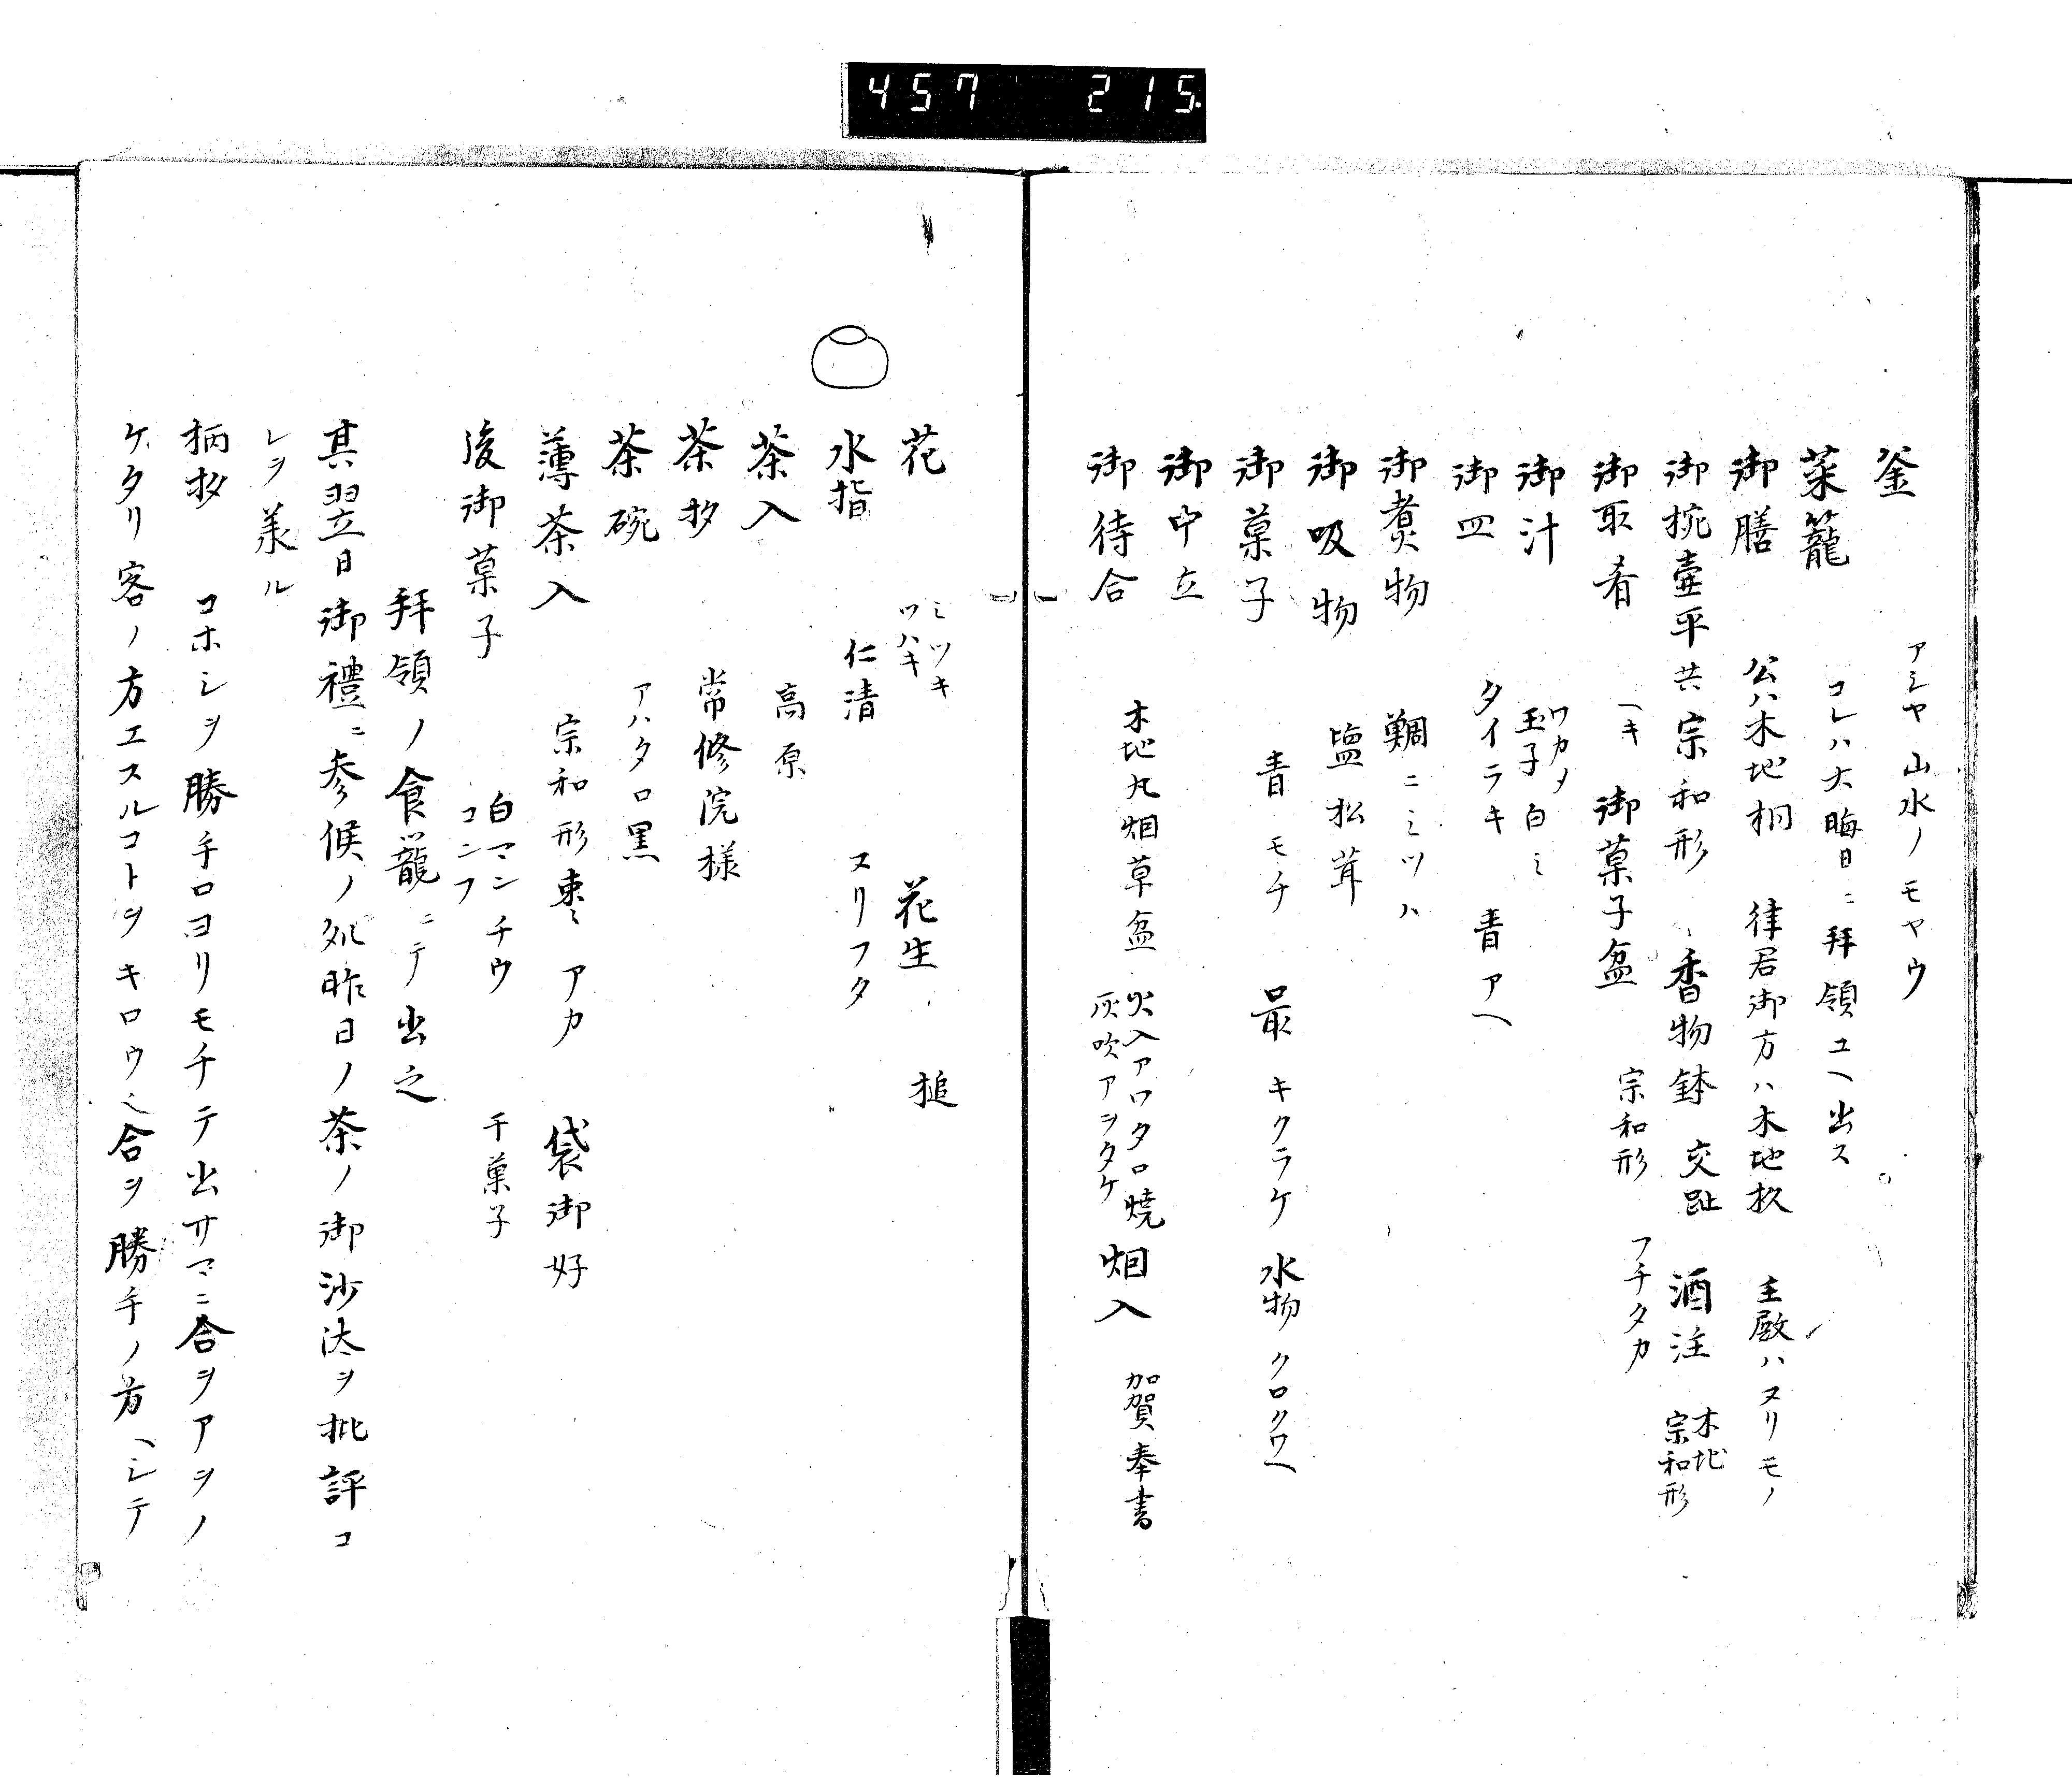 457 215
釜 アシヤ山水ノモヤウ
菜籠 コレハ大晦日ニ拝領ユヘ出ス
御膳 公ハ木地桐 律君御方ハ木地杦 主殿ハヌリモノ
御捥壷平共宗和形 香物鉢 交趾 酒注 木地 宗和形
御取肴 ヘキ 御菓子盆 宗和形 フチタカ
御汁 ワカメ 玉子白ミ
御皿 タイラキ 青アヘ
御煮物 鯛ニミツハ
御吸物 塩松茸
御菓子 青モチ 最 キクラケ 水物 クロクワヘ
御中立
御待合 木地丸烟草盆 火入アワタロ焼 灰吹アヲタケ 烟入 加賀奉書
花 ミツキ ツハキ 花生 槌
水指 仁清 ヌリフタ
茶入 高原
茶杓 常修院様
茶碗 アハタロ黒
薄茶入 宗和形棗 アカ 袋御好
後御菓子 白マンチウ コンフ 干菓子
拝領ノ食籠ニテ出之
其翌日御禮ニ参候ノ処昨日ノ茶ノ御沙汰ヲ批評コ
レヲ羕ル
柄杓 コホシヲ勝手口ヨリモチテ出サマニ合ヲアヲノ
ケタリ客ノ方エスルコトヲキロウ之合ヲ勝手ノ方ヘシテ